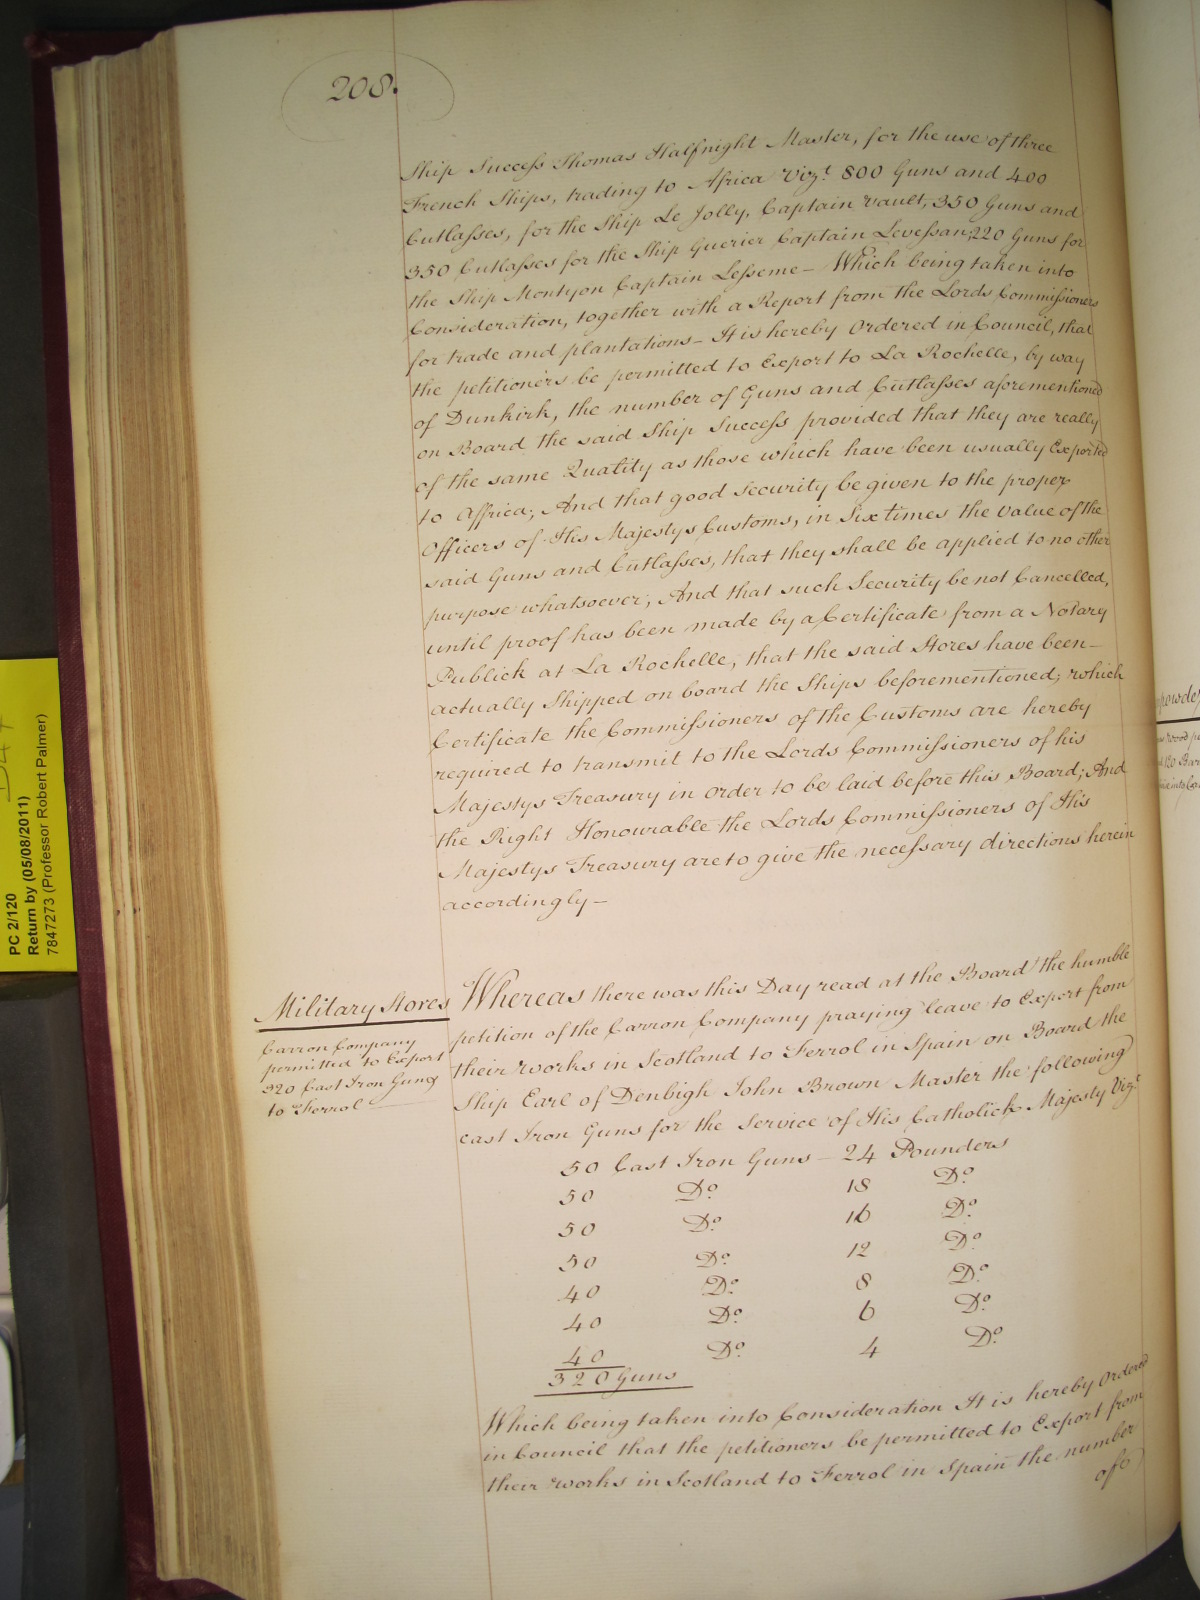 208.
Ship Success Thomas Halfnight Master, for the use of three
French Ships, trading to Africa Vizt. 800 Guns and 400
Cutlasses, for the Ship Le Jolly, Captain Vault, 350 Guns and
350 Cutlasses for the Ship Guerier Captain Levessan, 220 Guns for
the Ship Montyon Captain Lesseme – Which being taken into
Consideration, together with a Report from the Lords Commissioners
for trade and plantations – It is hereby Ordered in Council, that
the petitioners be permitted to Export to La Rochelle, by way
of Dunkirk, the number of Guns and Cutlasses aforementioned
on Board the said Ship Success provided that they are really
of the same Quality as those which have been usually Exported
to Affrica; And that good Security be given to the proper
Officers of His Majestys Customs, in Six times the Value of the
said Guns and Cutlasses, that they shall be applied to no other
purpose whatsoever; And that such Security be not Cancelled,
until proof has been made by a Certificate from a Notary
Publick at La Rochelle, that the said Stores have been –
actually Shipped on board the Ships beforementioned; which
Certificate the Commissioners of the Customs are hereby
required to transmit to the Lords Commissioners of his
Majestys Treasury in order to be laid before this Board; And
the Right Honourable the Lords Commissioners of His
Majestys Treasury are to give the necessary directions herein
accordingly –
Military Stores
Carron Company
permitted to Export
320 Cast Iron Guns
to Ferrol –
Whereas there was this Day read at the Board the humble
petition of the Carron Company praying leave to Export from
their works in Scotland to Ferrol in Spain on Board the
Ship Earl of Denbigh John Brown Master the following
cast Iron Guns for the Service of His Catholick Majesty Vizt.
50 Cast Iron Guns – 24 Pounders
50 Do. 18 Do.
50 Do. 16 Do.
50 Do. 12 Do.
40 Do. 8 Do.
40 Do. 6 Do.
40 Do. 4 Do.
320 Guns
Which being taken into Consideration It is hereby Ordered
in Council that the petitioners be permitted to Export from
their works in Scotland to Ferrol in Spain the number
of
PC 2/120
Return by (05/08/2011)
7847273 (Professor Robert Palmer)